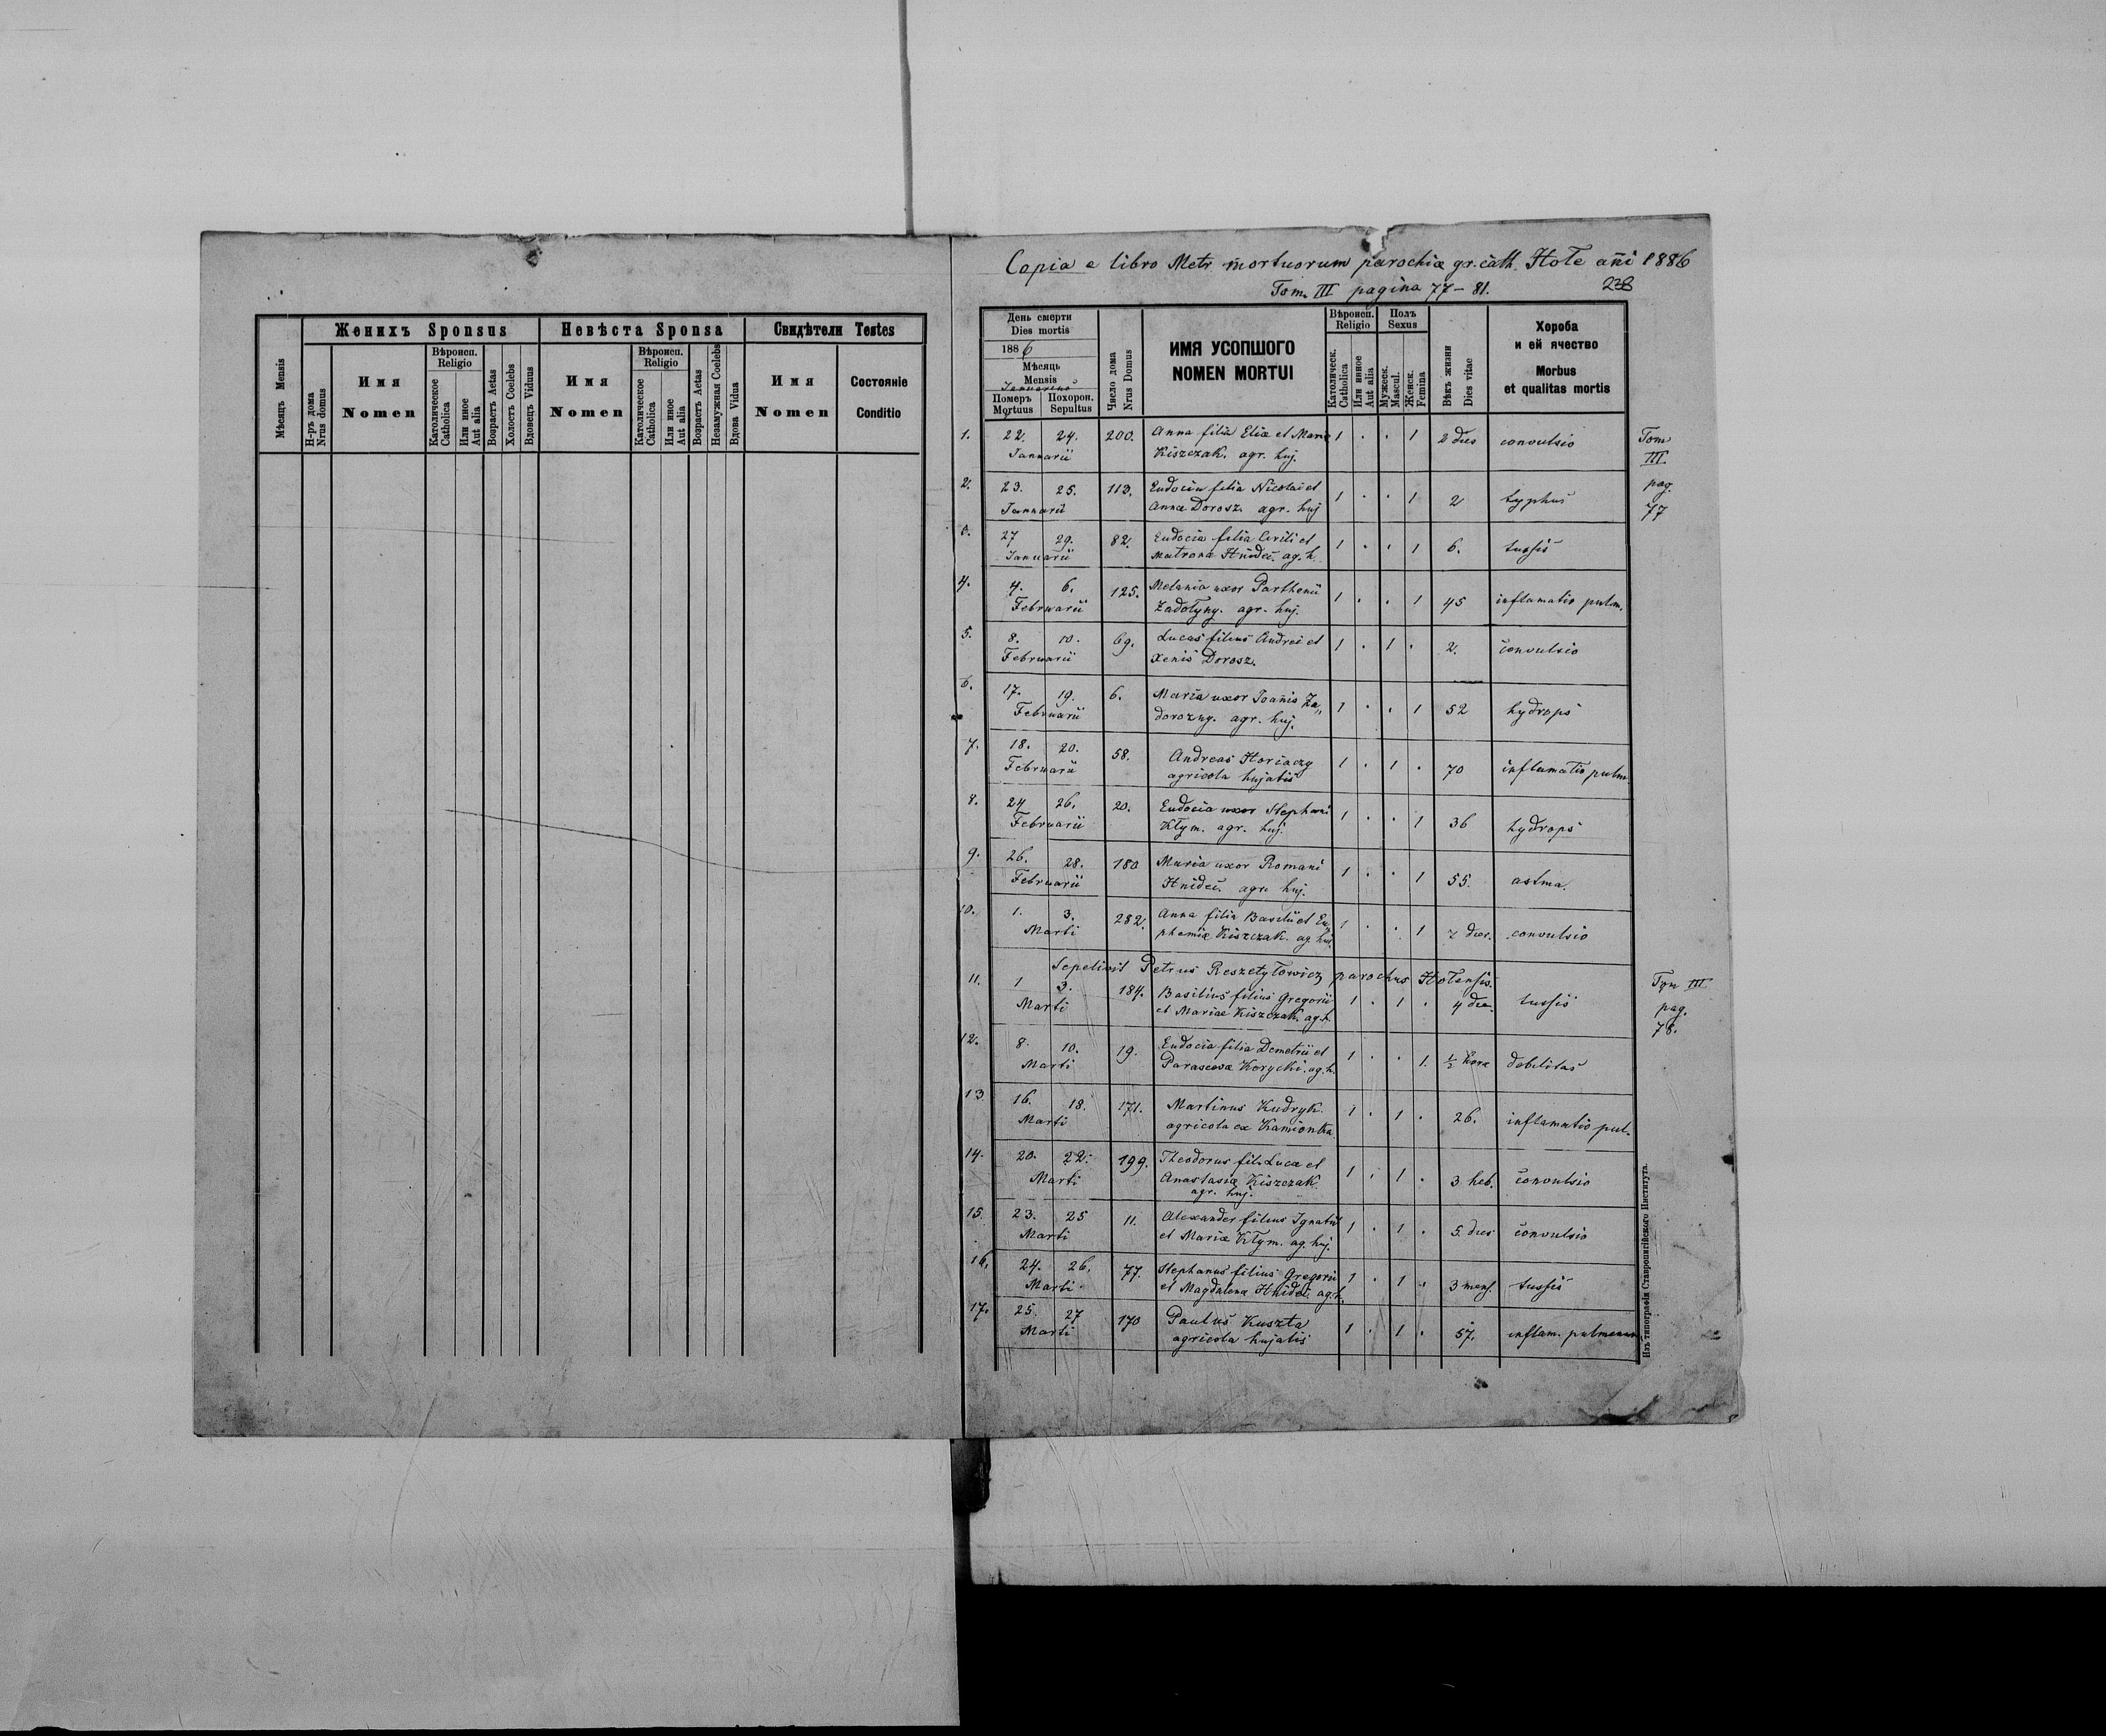 Женихъ Sponsus
Невѣста Sponsa
Свидѣтели Testes
Мѣсяцъ Mensis
Н-ръ дома
Nrus domus
Имя
Nomen
Вѣроисп.
Religio
Католическое
Catholica
Или иное
Aut alia
Возрастъ Aetas
Холостъ Coelebs
Вдовецъ Viduus
Имя
Nomen
Вѣроисп.
Religio
Католическое
Catholica
Или иное
Aut alia
Возрастъ Aetas
Незамужная Coelebs
Вдова Vidua
Имя
Nomen
Состояніе
Conditio
Copia e libro Metr. mortuorum parochiæ gr. cath. Hołe añi 1886
Tom. III pagina 77–81.
День смерти
Dies mortis
1886
Мѣсяць
Mensis
Januarius
Померъ
Mortuus
Похорон.
Sepultus
Число дома
Nrus Domus
ИМЯ УСОПШОГО
NOMEN MORTUI
Вѣроисп.
Religio
Католическ.
Catholica
Или инное
Aut alia
Полъ
Sexus
Мужеск.
Mascul.
Женск.
Femina
Вѣкъ жизни
Dies vitae
Хороба
и ей ячество
Morbus
et qualitas mortis
1. 22. 24. 200. Anna filia Eliæ et Mariæ 1 . . 1 2 dies convulsio
Januarii Kiszczak. agr. huj.
Tom
III.
pag.
77
2. 23. 25. 113. Eudocia filia Nicolai et 1 . . 1 2 typhus
Januarii Annæ Dorosz. agr. huj
3. 27 29. 82. Eudocia filia Cirili et 1 . . 1 6. tussis
Januarii Matronæ Hnideć. ag. h.
4. 4. 6. 125. Melania uxor Parthenii 1 . . 1 45 inflamatio pulm.
Februarii Zadołyny. agr. huj.
5. 8. 10. 69. Lucas filius Andrei et 1 . 1 . 2. convulsio
Februarii Xeniæ Dorosz.
6. 17. 19. 6. Maria uxor Joañis Za„ 1 . . 1 52 hydrops
Februarii dorozny. agr. huj.
7. 18. 20. 58. Andreas Horiaczy 1 . 1 . 70 inflamatio pulm
Februarii agricola hujatis
8. 24 26. 20. Eudocia uxor Stephani 1 . . 1 36 hydrops
Februarii Kłym. agr. huj.
9. 26. 28. 180 Maria uxor Romani 1 . . 1 55. astma.
Februarii Hnideć. agr. huj.
10. 1. 3. 282. Anna filia Basilii et Eu„ 1 . . 1 7 dies. convulsio
Marti phemiæ Kiszczak. ag. huj.
Sepelivit Petrus Reszetyłowicz parochus Hołensis.
11. 1 3. 184. Basilius filius Gregorii 1 . 1 . 4 die. tussis
Marti et Mariae Kiszczak. ag. h.
Tom III
pag.
78.
12. 8. 10. 19. Eudocia filia Demetrii et 1 . . 1. ½ horæ debilitas
Marti Parascevæ Korycki. ag. h.
13. 16. 18. 171. Martinus Kudryk. 1 . 1 . 26. inflamatio pul.
Marti agricola ex Kamionka
14. 20. 22. 199. Theodorus fil. Lucæ et 1 . 1 . 3 heb. convulsio
Marti Anastasiæ Kiszczak
agr. huj.
15. 23. 25 11. Alexander filius Ignatii 1 . 1 . 5. dies convulsio
Marti et Mariæ Kłym. ag. huj.
16. 24. 26. 77. Stephanus filius Gregorii 1 . 1 . 3 mens. tussis
Marti et Magdalenæ Hnideć. ag. h.
17. 25. 27 170 Paulus Kuszta 1 . 1 . 57. inflam. pulmonum
Marti agricola hujatis
Изъ типографіи Ставропигійского Института.